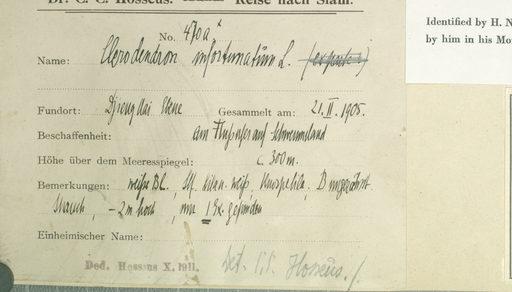 Dr. C. C. Hosseus. Reise nach Siam.
Identified by H. N
by him in his Mo
No. 470a
Name: Clerodendron infortunatum L.
Fundort: Djieng Mai Ebene Gesammelt am: 21. II. 1905.
Beschaffenheit: am Flussufer auf Schwemmland
Höhe über dem Meeresspiegel: c. 300 m.
Bemerkungen: weisse Bl.
Strauch, - 2 m hoch, nur 1 Ex. gefunden
Einheimischer Name:
Ded. Hosseus X. 1911. Det. C.C. Hosseus.